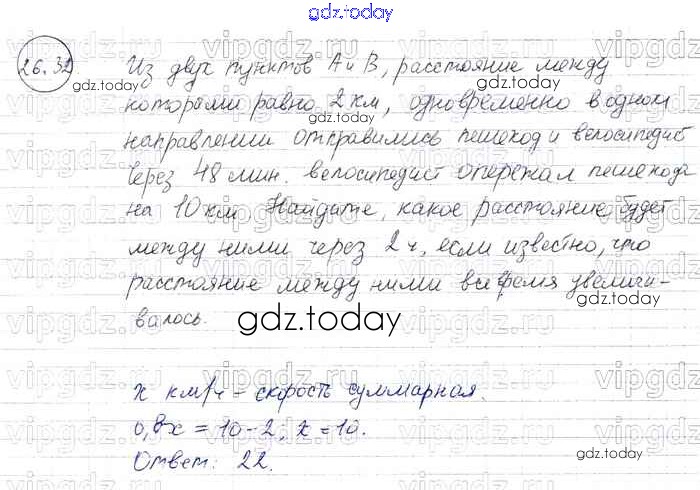 gdz.today
26.32
Из двух пунктов А и В, расстояние между
gdz.today
которыми равно 2 км, одновременно в одном
gdz.today
направлении отправились пешеход и велосипедист
Через 48 мин. велосипедист опережал пешехода
gdz.today
на 10 км. Найдите, какое расстояние будет
gdz.today
между ними через 2 ч, если известно, что
расстояние между ними все время увеличи-
gdz.today
валось.
gdz.today
x км/ч – скорость суммарная.
0,8x = 10 – 2; x = 10.
gdz.today
Ответ: 22.
gdz.today
vipgdz.ru